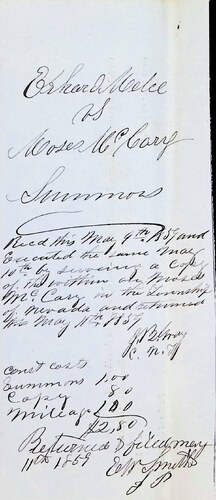 vs
Moses McCary
Summons
Recd this May 9th 1859 and
Executed the same May
10th by serving a Copy
of the within on Moses
McCary in the township
of Nevada and returned
this May 11th 1859
Const costs
Summons 1.00
Copy 80
Mileage 1.00
$2,80
Returned & filed May
11th 1859 E W Smith
J P